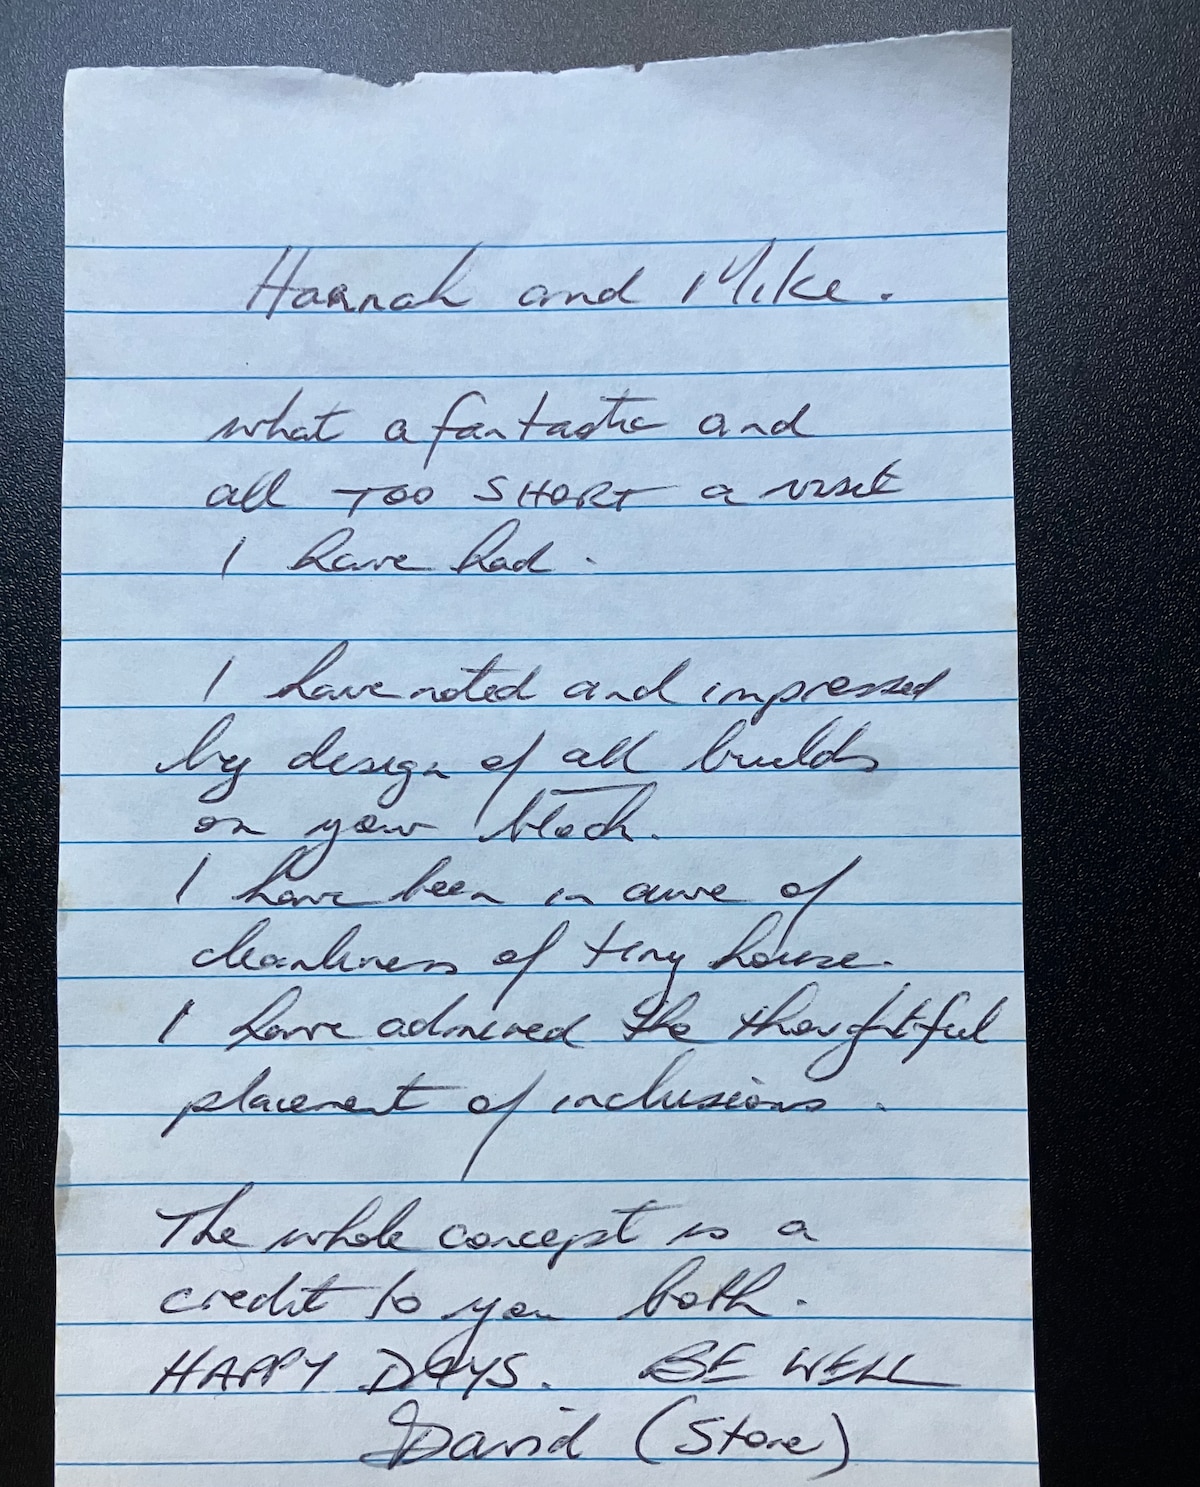 Hannah and Mike.
what a fantastic and
all TOO SHORT a visit
I have had.
I have noted and impressed
by design of all builds
on your block.
I have been in awe of
cleanliness of tiny house.
I have admired the thoughtful
placement of inclusions.
The whole concept is a
credit to you both.
HAPPY DAYS. BE WELL
David (Stone)